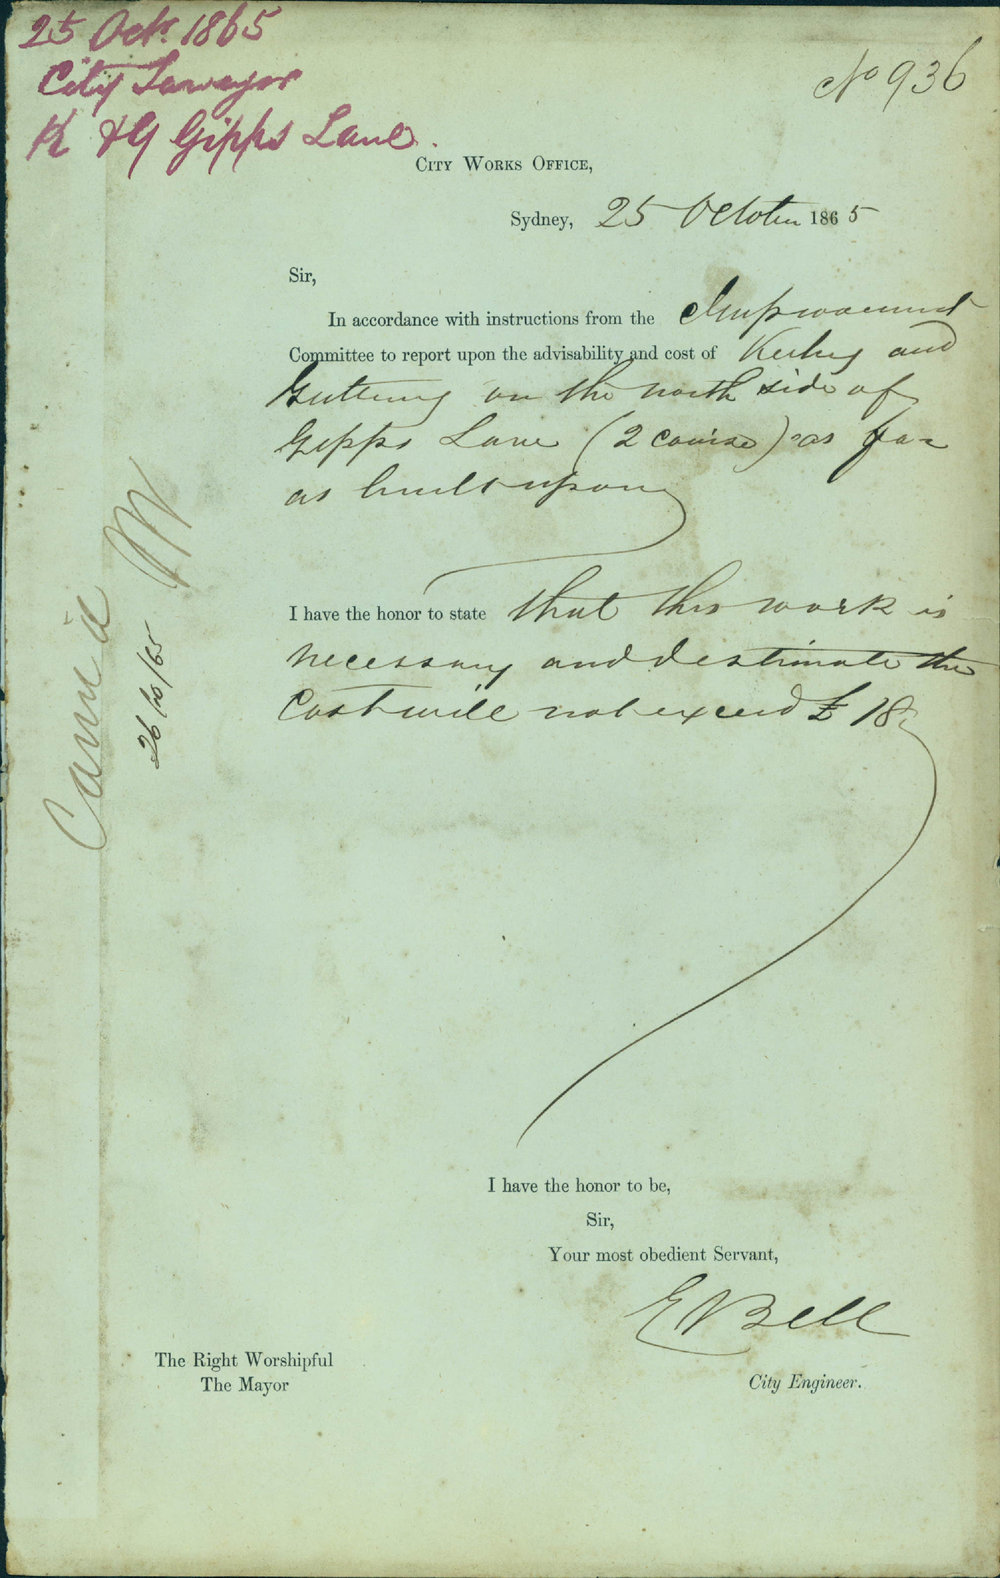 25 Oct. 1865
City Surveyor
K & G Gipps Lane.
No 936
City Works Office,
Sydney, 25 October 1865
Sir,
In accordance with instructions from the Improvement
Committee to report upon the advisability and cost of Kerbing and
Guttering on the north side of
Gipps Lane (2 course) as far
as built upon
I have the honor to state that this work is
necessary and I estimate the
Cost will not exceed £18.
Carried
26/10/65
I have the honor to be,
Sir,
Your most obedient Servant,
E Bell
City Engineer.
The Right Worshipful
The Mayor